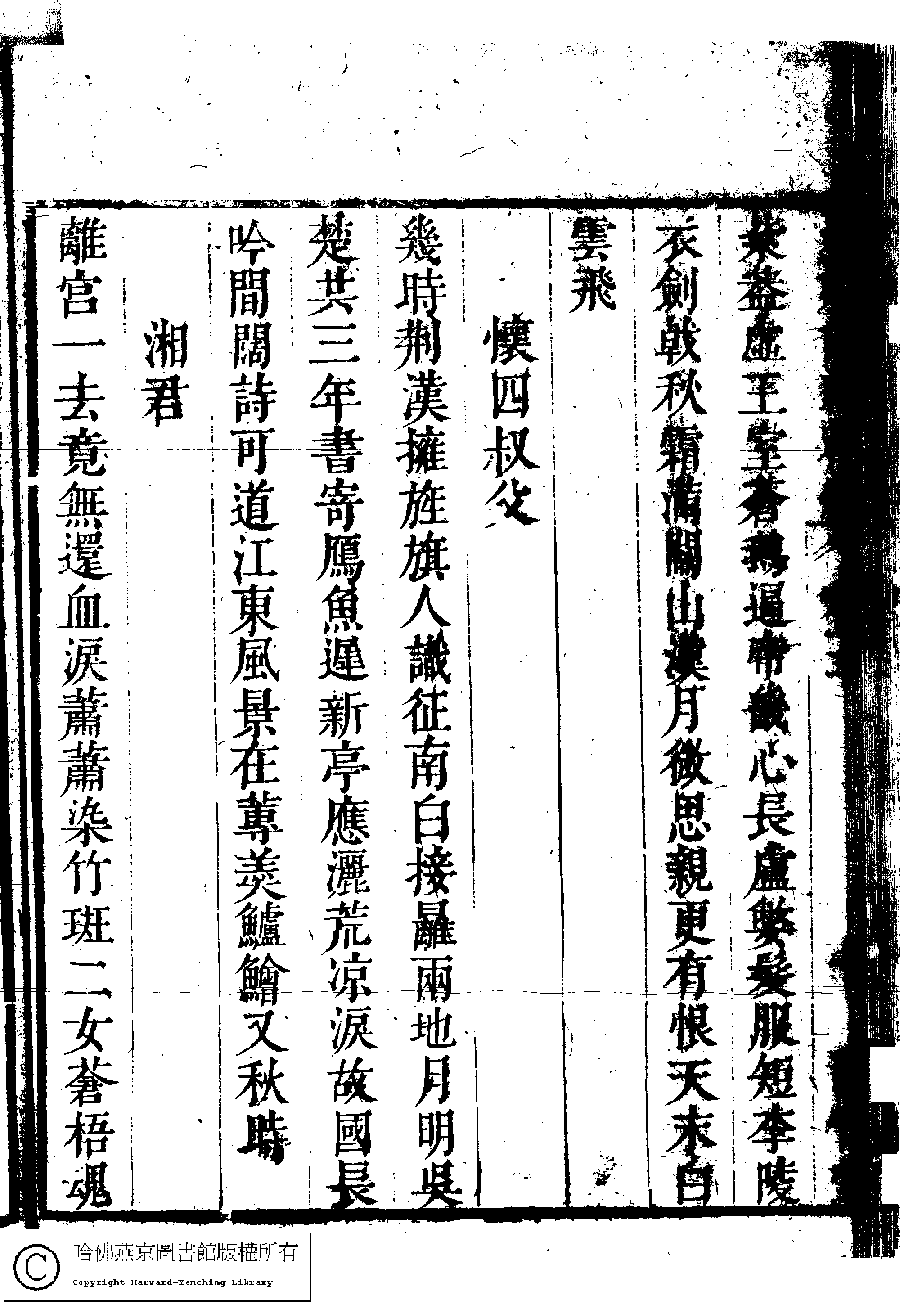 紫蓋虛王室蒼鵝逼帝畿心長盧勢髮服短李陵
衣劍戟秋霜滿關山漢月微思親更有恨天末白
雲飛
懷四叔父
幾時荆漢擁旌旗人識征南白接䍦兩地月明吳
楚共三年書寄鴈魚遲新亭應灑荒凉淚故國長
吟間闊詩可道江東風景在蓴羮鱸鱠又秋時
湘君
離宫一去竟無還血淚蕭蕭染竹班二女蒼梧魂
哈佛燕京圖書館版權所有
Copyright Harvard-Yenching Library